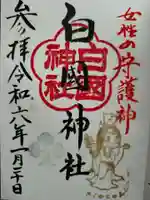 女性の守護神
白國神社
白國
神社
参拝
令和六年一月三十日